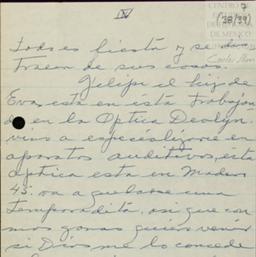 IV
7
(38/39)
CENTRO
DE MÉXICO
todo es fiesta y se dis
traen de sus cosas.
Felipe el hijo de
Eva, está en ésta trabajan
do en la Optica Devlyn.
vino a especializarse en
aparatos auditivos, esta
optica esta en Madero
45. va a quedarse una
temporadita, asi que con
mas ganas quiero venir
si Dios me lo concede